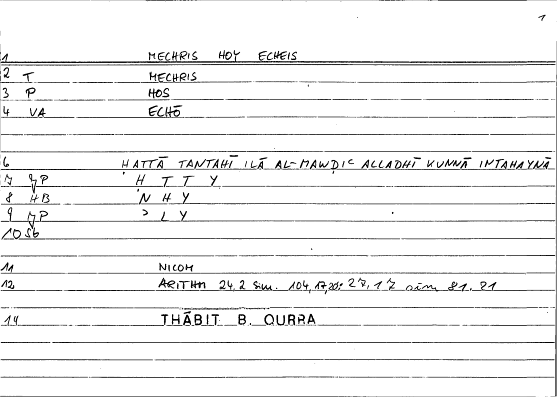 1
1 MECHRIS HOY ECHEIS
2 T MECHRIS
3 P HOS
4 VA ECHŌ
6 ḤATTĀ TANTAHĪ ILĀ AL-MAWḌIC ALLADHĪ KUNNĀ INTAHAYNĀ
7 P Ḥ T T Y
8 HB N H Y
9 P ʾ L Y
10 Sb
11 NICOM
12 ARITHM 24,2 sim. 104,17,20: 27,17 sim 81.21
14 THĀBIT B. QURRA